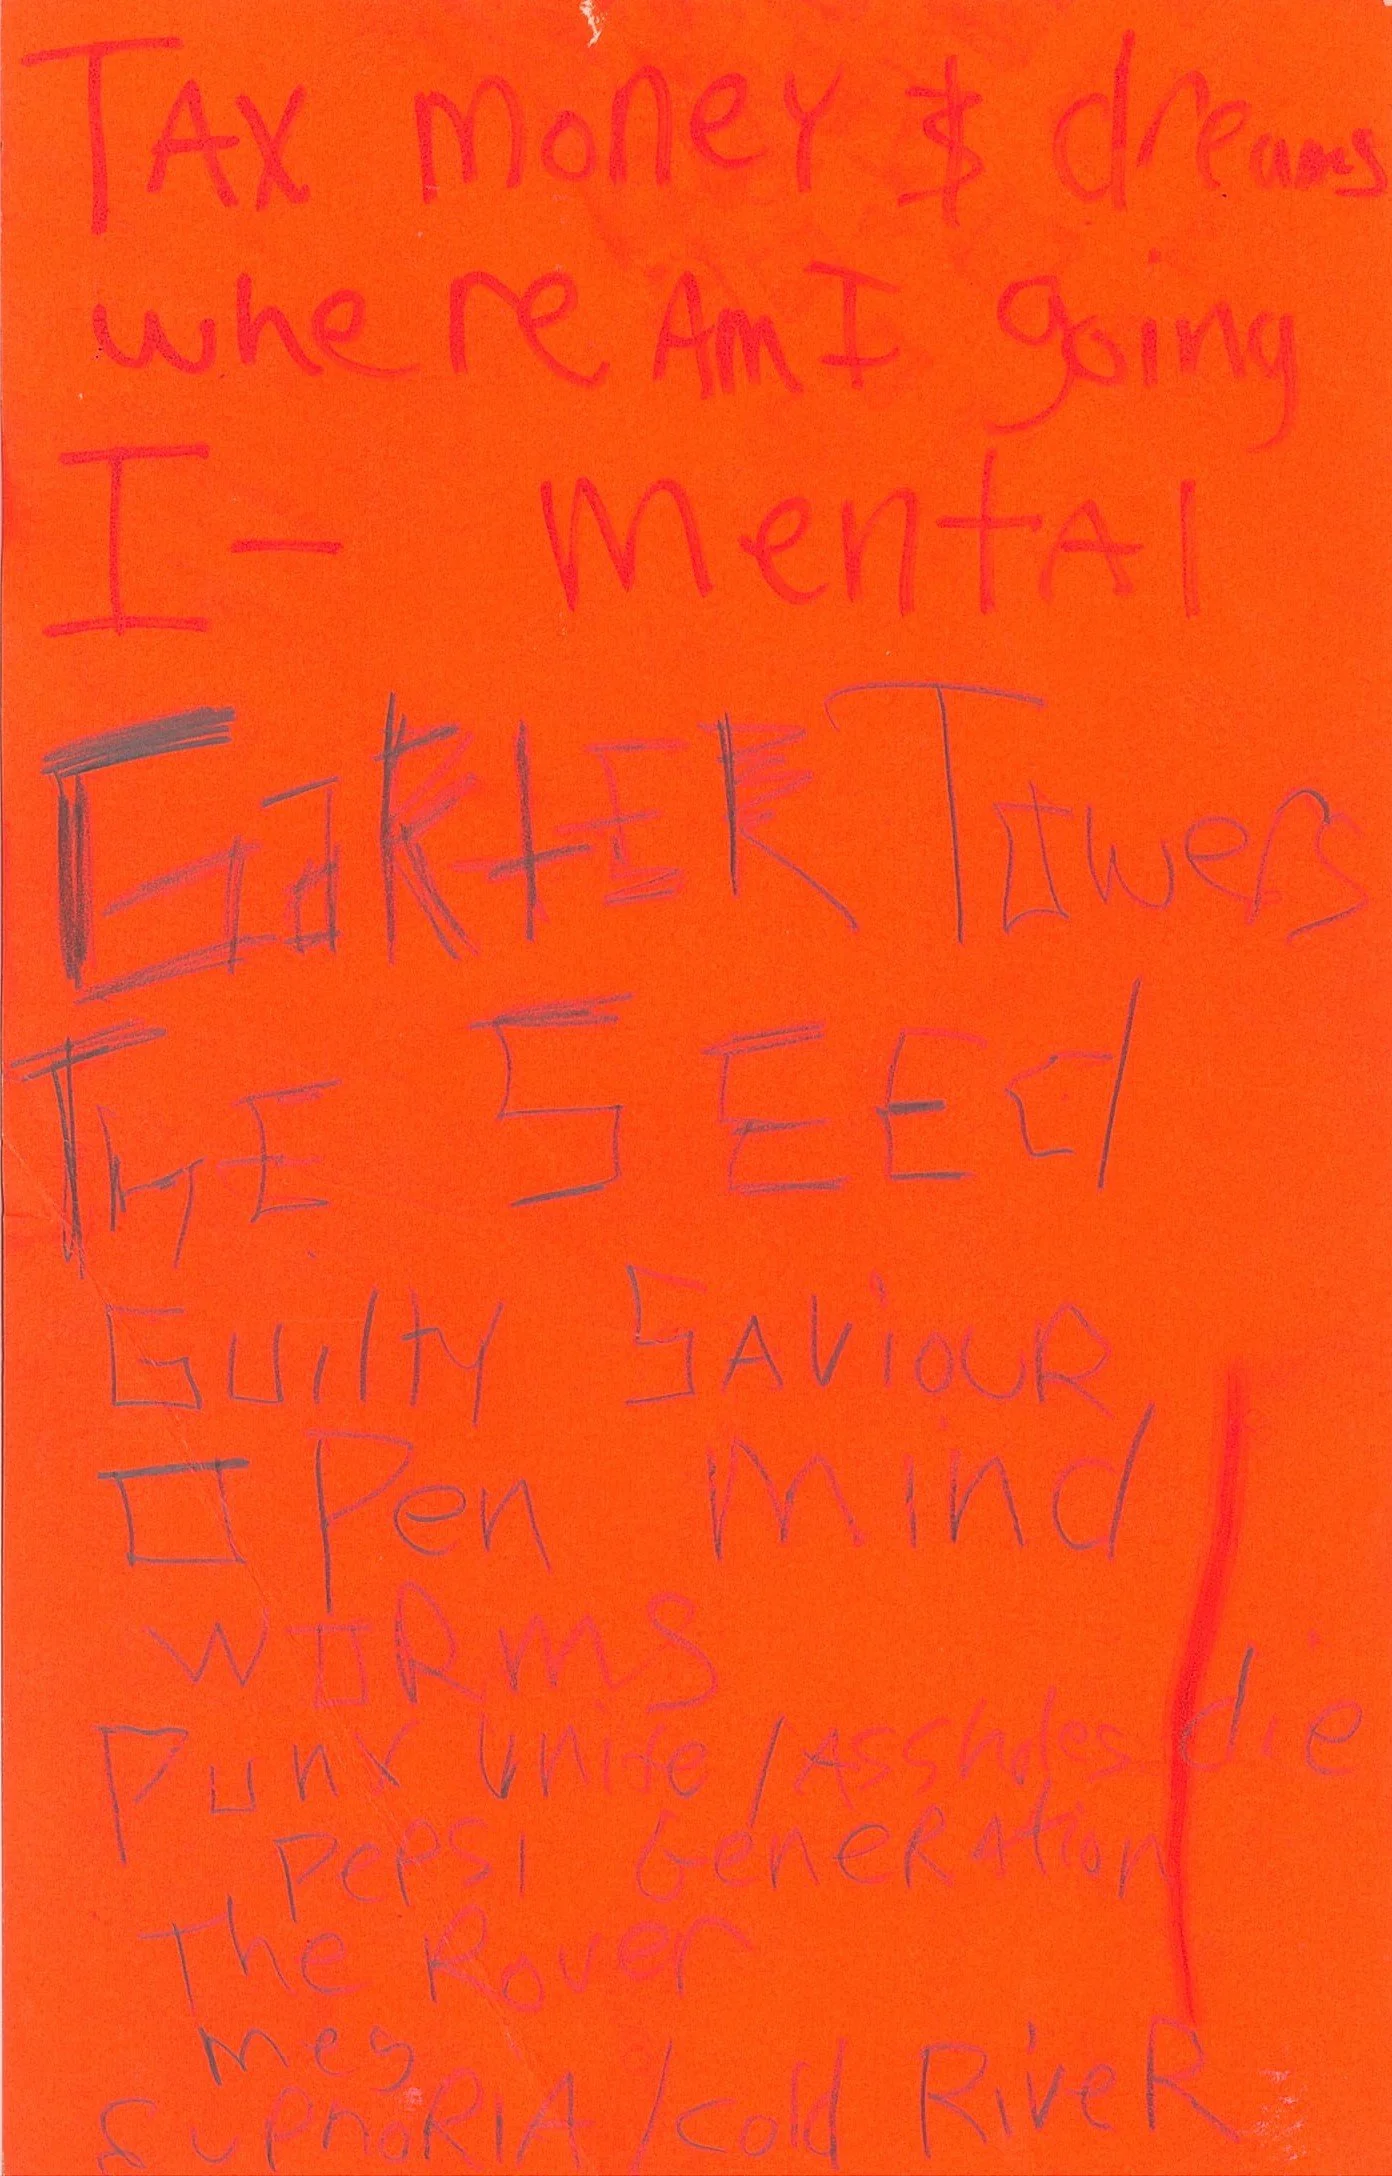 TAX money $ dreams
where Am I going
I- mentAl
GaRtER Towers
THE SEEd
Guilty SAViouR
OPen mind
woRms
Punx unite / Assholes die
Pepsi GeneRAtion
The Rover
meg
EuPhoRIA / cold RiveR